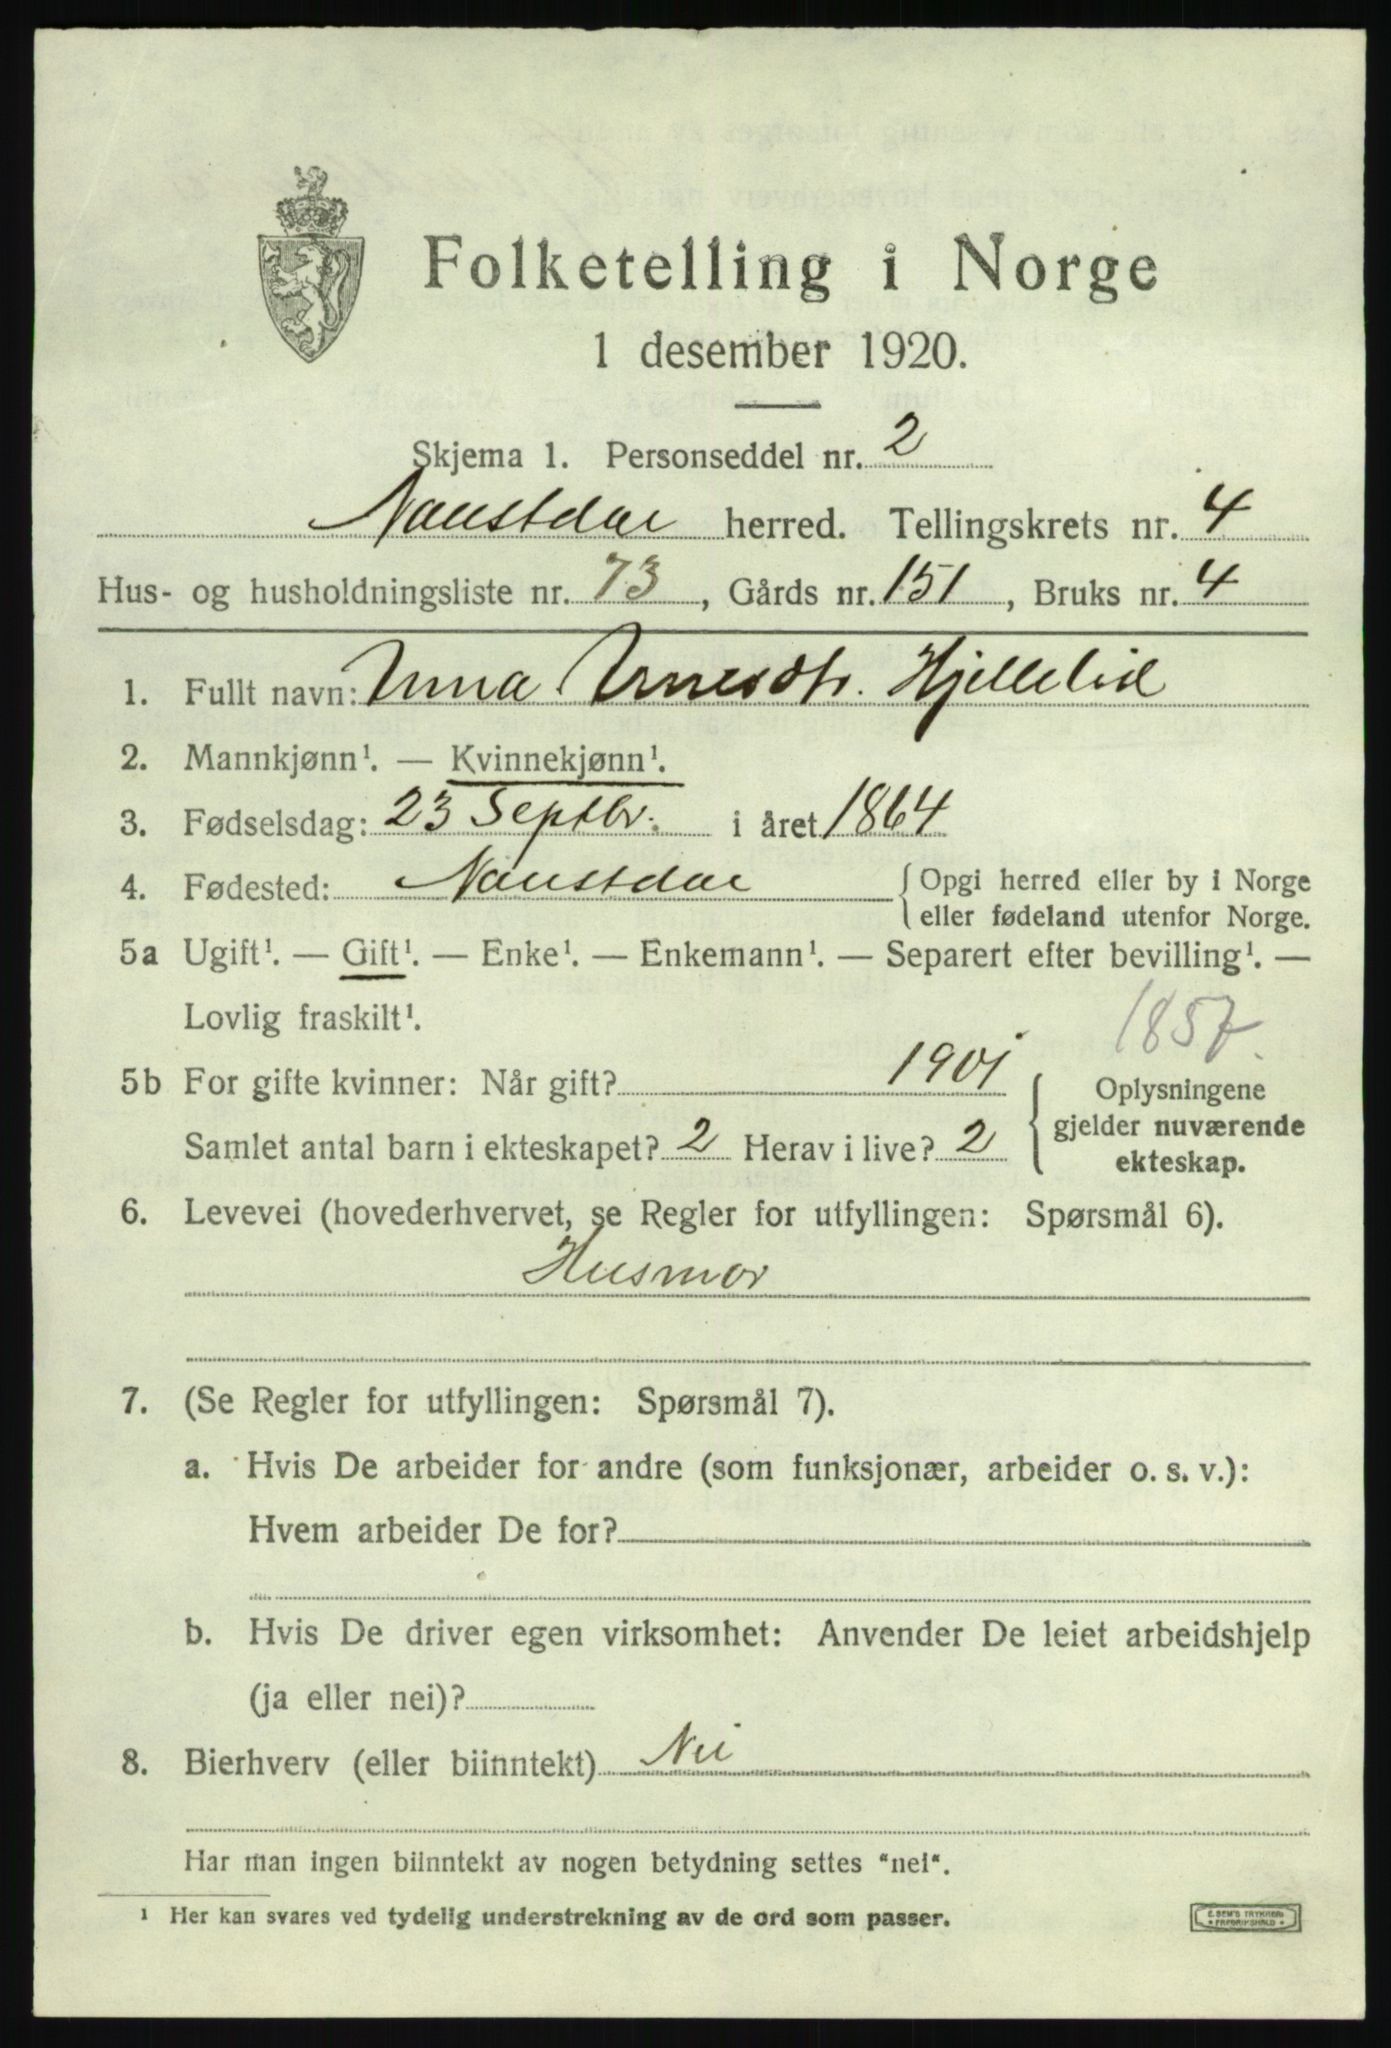 Folketelling i Norge
1 desember 1920.
Skjema 1. Personseddel nr. 2
Naustdal herred. Tellingskrets nr. 4
Hus- og husholdningsliste nr. 73, Gårds nr. 151, Bruks nr. 4
1. Fullt navn: Anna Arnesdtr. Hjellelid
2. Mannkjønn¹. — Kvinnekjønn¹.
3. Fødselsdag: 23 Septbr. i året 1864
4. Fødested: Naustdal {Opgi herred eller by i Norge
eller fødeland utenfor Norge.
5a Ugift¹. — Gift¹. — Enke¹. — Enkemann¹. — Separert efter bevilling¹. —
Lovlig fraskilt¹.
1857.
5b For gifte kvinner: Når gift? 1901 { Oplysningene
gjelder nuværende
Samlet antal barn i ekteskapet? 2 Herav i live? 2
ekteskap.
6. Levevei (hovederhvervet, se Regler for utfyllingen: Spørsmål 6).
Husmor
7. (Se Regler for utfyllingen: Spørsmål 7).
a. Hvis De arbeider for andre (som funksjonær, arbeider o. s. v.):
Hvem arbeider De for?
b. Hvis De driver egen virksomhet: Anvender De leiet arbeidshjelp
(ja eller nei)?
8. Bierhverv (eller biinntekt) Nei
Har man ingen biinntekt av nogen betydning settes "nei".
¹ Her kan svares ved tydelig understrekning av de ord som passer.
E. SEM'S TRYKKERI
FREDRIKSHALD